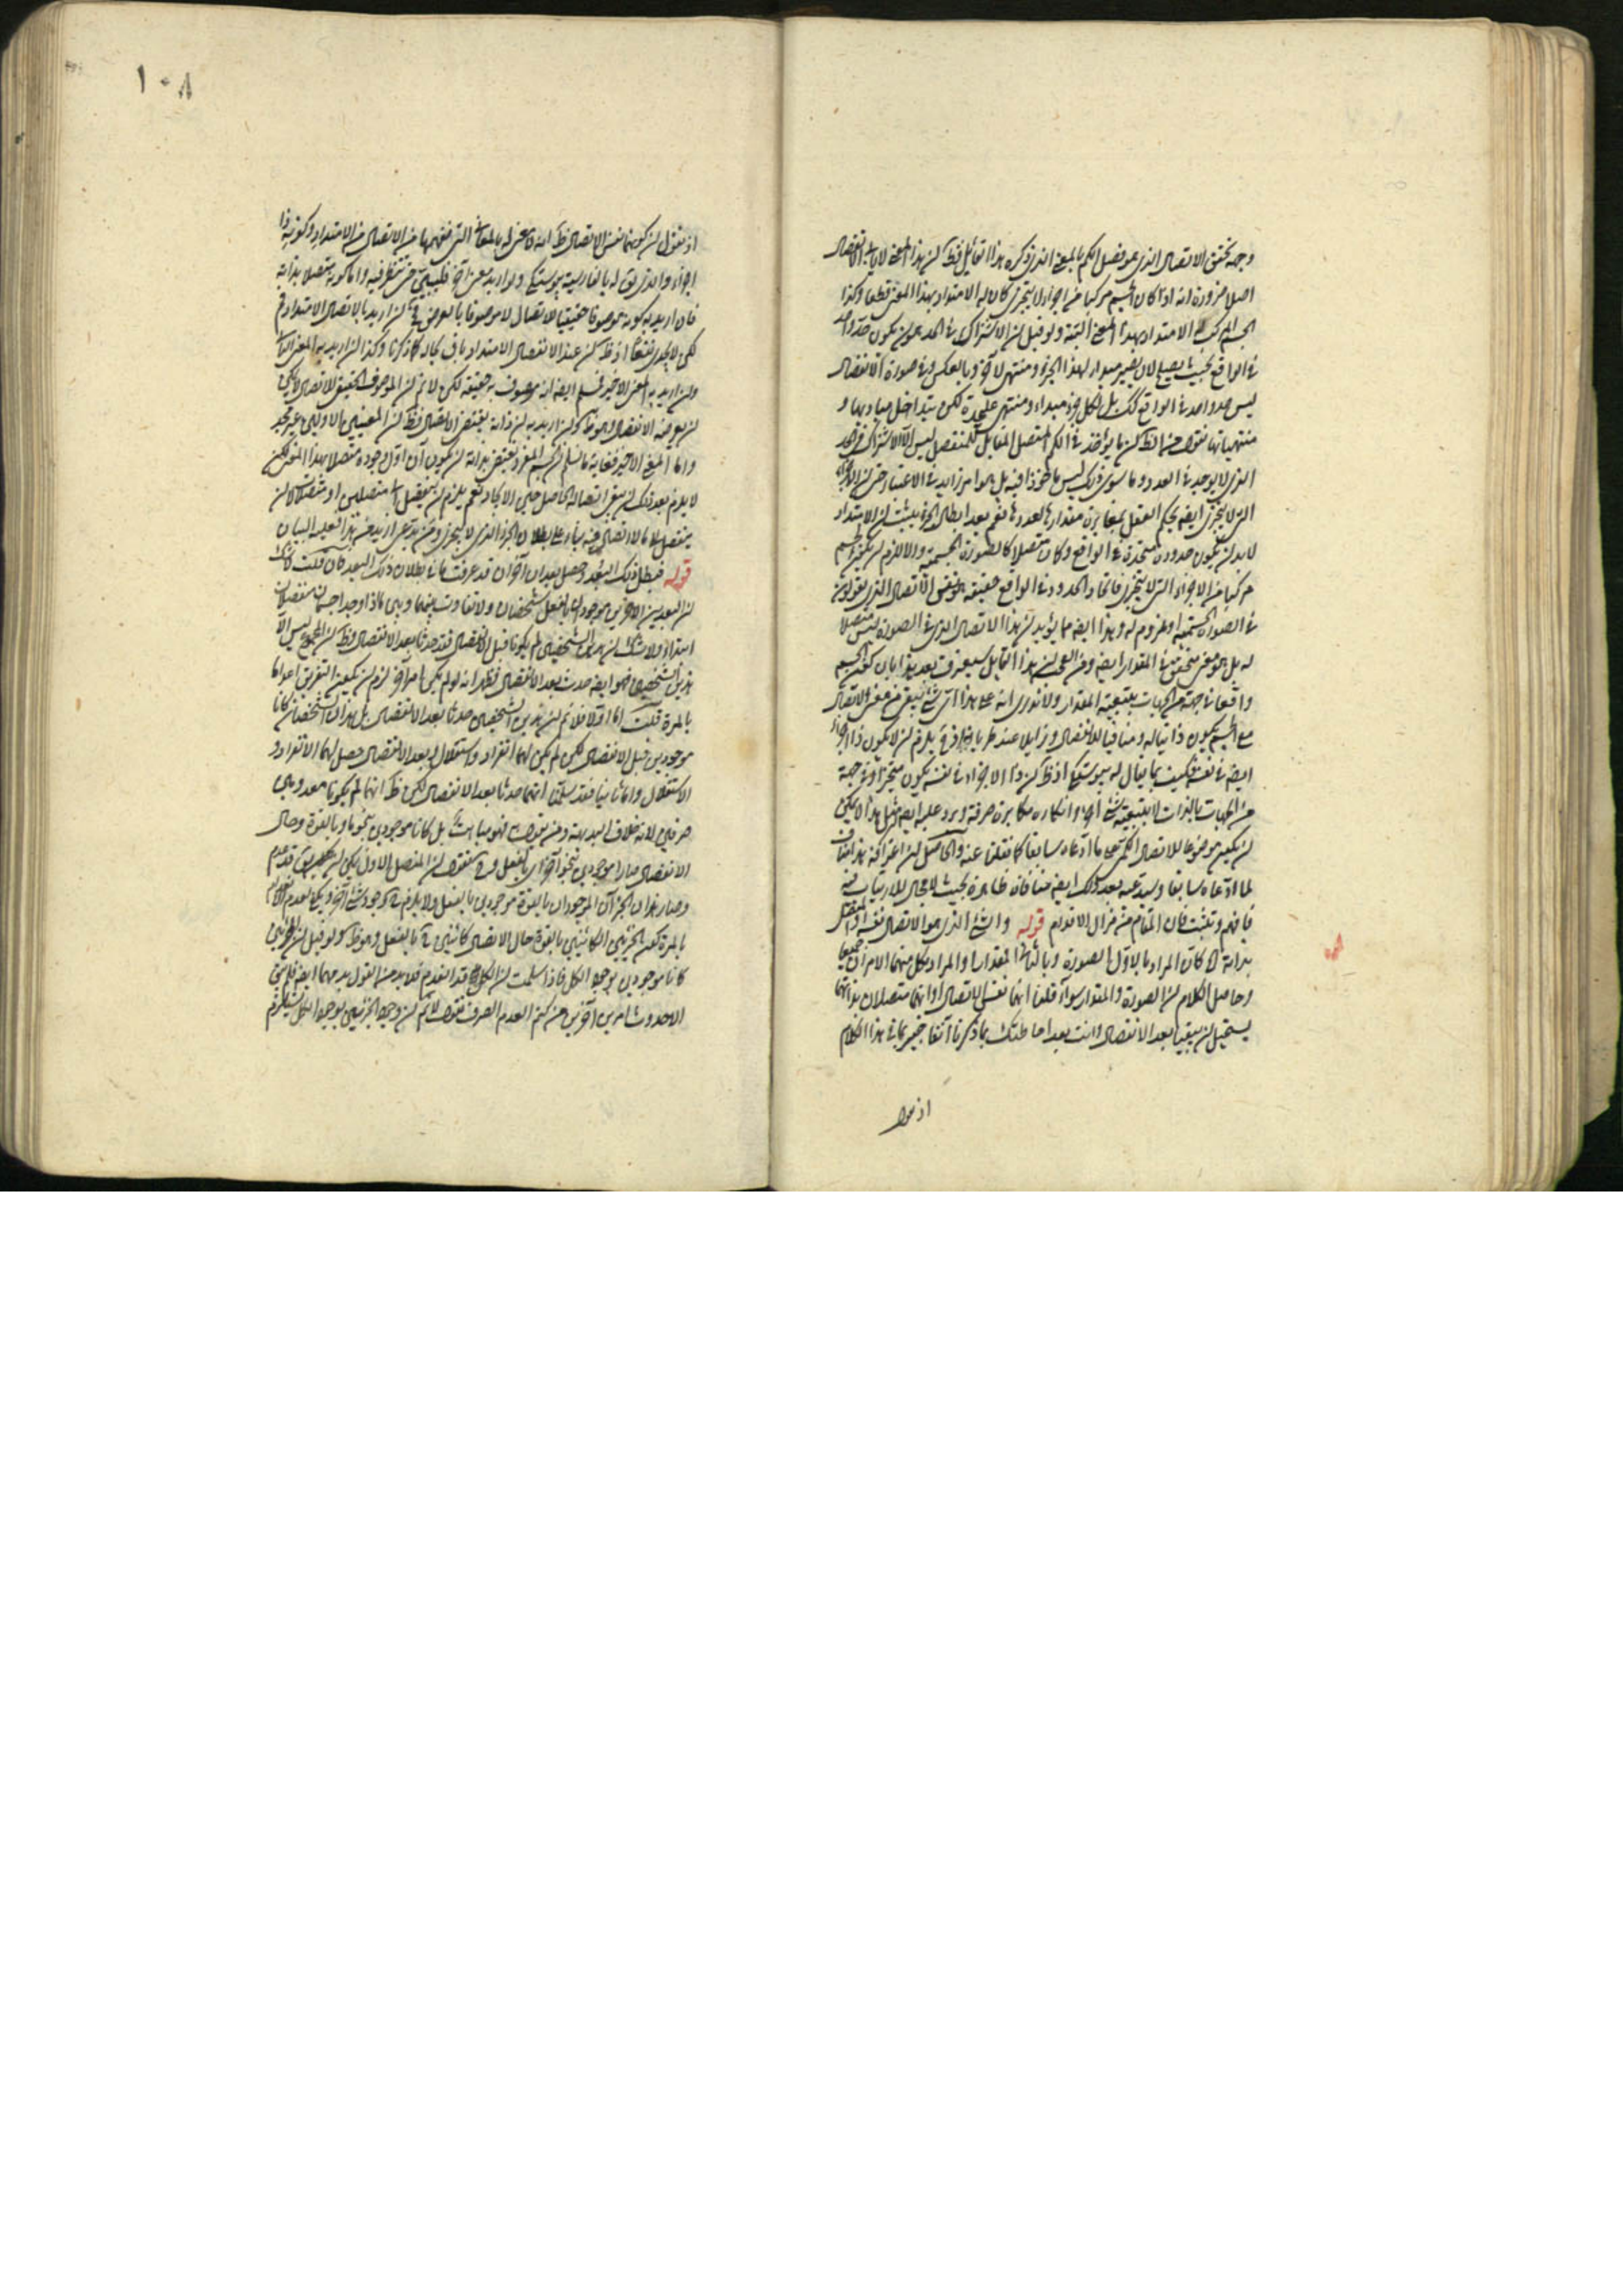 وجه تحقق الاتصال الذى هو فصل الكم بالمعنى الذى ذكره هذا القائل فظ لان هذا المعنى لا يأباه الانفصال
اصلا ضرورة انه اذا كان الجسم مركبا من اجزاء لا يتجزى كان له الامتداد بهذا المعنى قطعا وكذا
الجسم المركب الامتداد بهذا المعنى البتة ولو قيل ان الاشتراك فى الحد هو ان يكون حد واحد
فى الواقع بحيث يصلح لان يصير مبدأ لهذا الجزء ومنتهى لآخر وبالعكس وفى صورة الانفصال
ليس حد واحد فى الواقع كك بل لكل جزء مبداء ومنتهى عليحدة لكن يتداخل مباديها و
منتهياتها نقول من الظ ان ما يؤخذ فى الكم المتصل المقابل للمنفصل ليس الا الاشتراك فى حد
الذى لا يوجد فى العدد وما سوى ذلك ليس ماخوذا فيه بل هو امر زايد فى الاعتبار حتى ان الاجزاء
التى لا يتجزى ايضا يحكم العقل بمغايرة مقدارها لعددها نعم بعد ابطال الجزء يثبت ان الامتداد
لابد ان يكون حدوده متحدة فى الواقع وكان متصلا كالصورة الجسمية والا لزم ان يكون الجسم
مركبا من الاجزاء التى لا يتجزى فاتحاد الحدود فى الواقع حقيقة هو نفس الاتصال الذى يقولون
فى الصورة الجسمية او ملزوم له وهذا ايضا مما يؤيد ان هذا الاتصال الذى فى الصورة ليس فصلا
له بل هو معنى متحقق فى المقدار ايضا ومن العجب ان هذا القايل سيعترف بعد هذا بان كون الجسم
واقعا فى جهة من الجهات بتبعية المقدار ولا ندرى انه على هذا اى شئ يبقى من معنى الاتصال
مع الجسم يكون ذاتيا له ومنافيا للانفصال وزايلا عند طريانه
ايضا فى نفسه فكيف بما يقال له بيوستگى اذ ظ ان ذا الاجزاء فى نفسه يكون متحيزا وفى جهة
من الجهات بالذات لا بتبعية شئ آخر وانكاره مكابرة صرفة ويرد عليه ايضا مثل هذا لا يمكن
ان يكون موضوعا للاتصال الكمى على ما ادعاه سابقا كما نقلنا عنه والحاصل ان اعترافه هذا مناف
لما ادعاه سابقا وسيدعيه بعد ذلك ايضا منافاة ظاهرة بحيث لا مجال للارتياب فيه
فافهم وتثبت فان المقام من مزال الاقدام قوله والشئ الذى هو الاتصال نفسه او المتصل
بذاته الخ كان المراد بالاول الصورة وبالثانى المقدار او المراد بكل منهما الامران جميعا
وحاصل الكلام ان الصورة والمقدار سواء قلنا انهما نفس الاتصال او انهما متصلان بذاتهما
يستحيل ان يبقيا بعد الانفصال وانت بعد احاطتك بما ذكرنا آنفا خبير بما فى هذا الكلام
اذ نقول
١٠٨
اذ نقول ان كونهما نفس الاتصال ظ انه لا معنى له بالمعانى التى نفهمها من الاتصال من الامتداد وكونه ذا
اجزاء والذى يق له بالفارسية بيوستگى ولو اريد معنى آخر فليبين حتى ننظر فيه واما كونه متصلا بذاته
فان اريد به كونه موصوفا حقيقيا للاتصال لا موصوفا بالعرض فح ان اريد بالاتصال الامتداد فم
لكن لا يجدى نفعا اذ ظ ان عند الانفصال الامتداد باق بحاله كما ذكرنا وكذا ان اريد به المعنى الثانى
وان اريد به المعنى الاخير فمسلم ايضا انه موصوف به حقيقة لكن لا نم ان الموصوف الحقيقى للاتصال لا يمكن
ان يعرضه الانفصال وهو ظ وان اريد به ان ذاته يقتضى الاتصال فظ ان المعنيين الاولين غير مجد
واما المعنى الاخير فغاية ما نسلم ان الجسم المفرد يقتضى بذاته ان يكون آن اول وجوده متصلا بهذا المعنى لكن
لا يلزم بعد ذلك ان يبقى اتصاله الحاصل حين الايجاد نعم يلزم ان ينفصل الى متصلين او متصلات لا ان
ينفصل الى ما لا اتصال فيه بناء على بطلان الجزء الذى لا يتجزى ومن يدعى ازيد من هذا فعليه البيان
قوله فيبطل ذلك البعد وحصل بعدان آخران قد عرفت ما فى بطلان ذلك البعد فان قلت لا شك
ان البعدين الآخرين موجودان بالفعل شخصان ولا تفاوت بينهما وبين ما اذا وجدا جسمان منفصلان
ابتداء ولا شك ان هذين الشخصين لم يكونا قبل الانفصال فقد حدثا بعد الانفصال وظ ان المجموع ليس الا
هذين الشخصين فهو ايضا حدث بعد الانفصال فظهر انه لو لم يكن امر آخر لزم ان يكون التفريق اعداما
بالمرة قلت اما اولا فلا نم ان هذين الشخصين حدثا بعد الانفصال بل هذان الشخصان كانا
موجودين قبل الانفصال لكن لم يكن لهما انفراد واستقلال وبعد الانفصال حصل لهما الانفراد و
الاستقلال واما ثانيا فقد سلمنا انهما حدثا بعد الانفصال لكن ظ انهما لم يكونا معدومين
صرفين لانه خلاف البديهة ومن يقول به فهو مباهت بل كانا موجودين بنحو ما وبالقوة وحال
الانفصال صارا موجودين بنحو آخر اى بالفعل وح نقول ان المتصل الاول يمكن ان يق قد عدم
وصار هذان الجزآن الموجودان بالقوة موجودين بالفعل ولا يلزم وجود شئ آخر ويمكن بعدم
بالمرة كون الجزئين الكائنين بالقوة حال الاتصال كائنين ح بالفعل وهو ظ ولو قيل ان الجزئين
كانا موجودين بوجود الكل فاذا سلمت ان الكل قد انعدم فلابد من القول بعدمهما ايضا فلم يبق
الا حدوث امرين آخرين من كتم العدم الصرف نقول لا نم ان وجود الجزئين بوجود الكل يستلزم